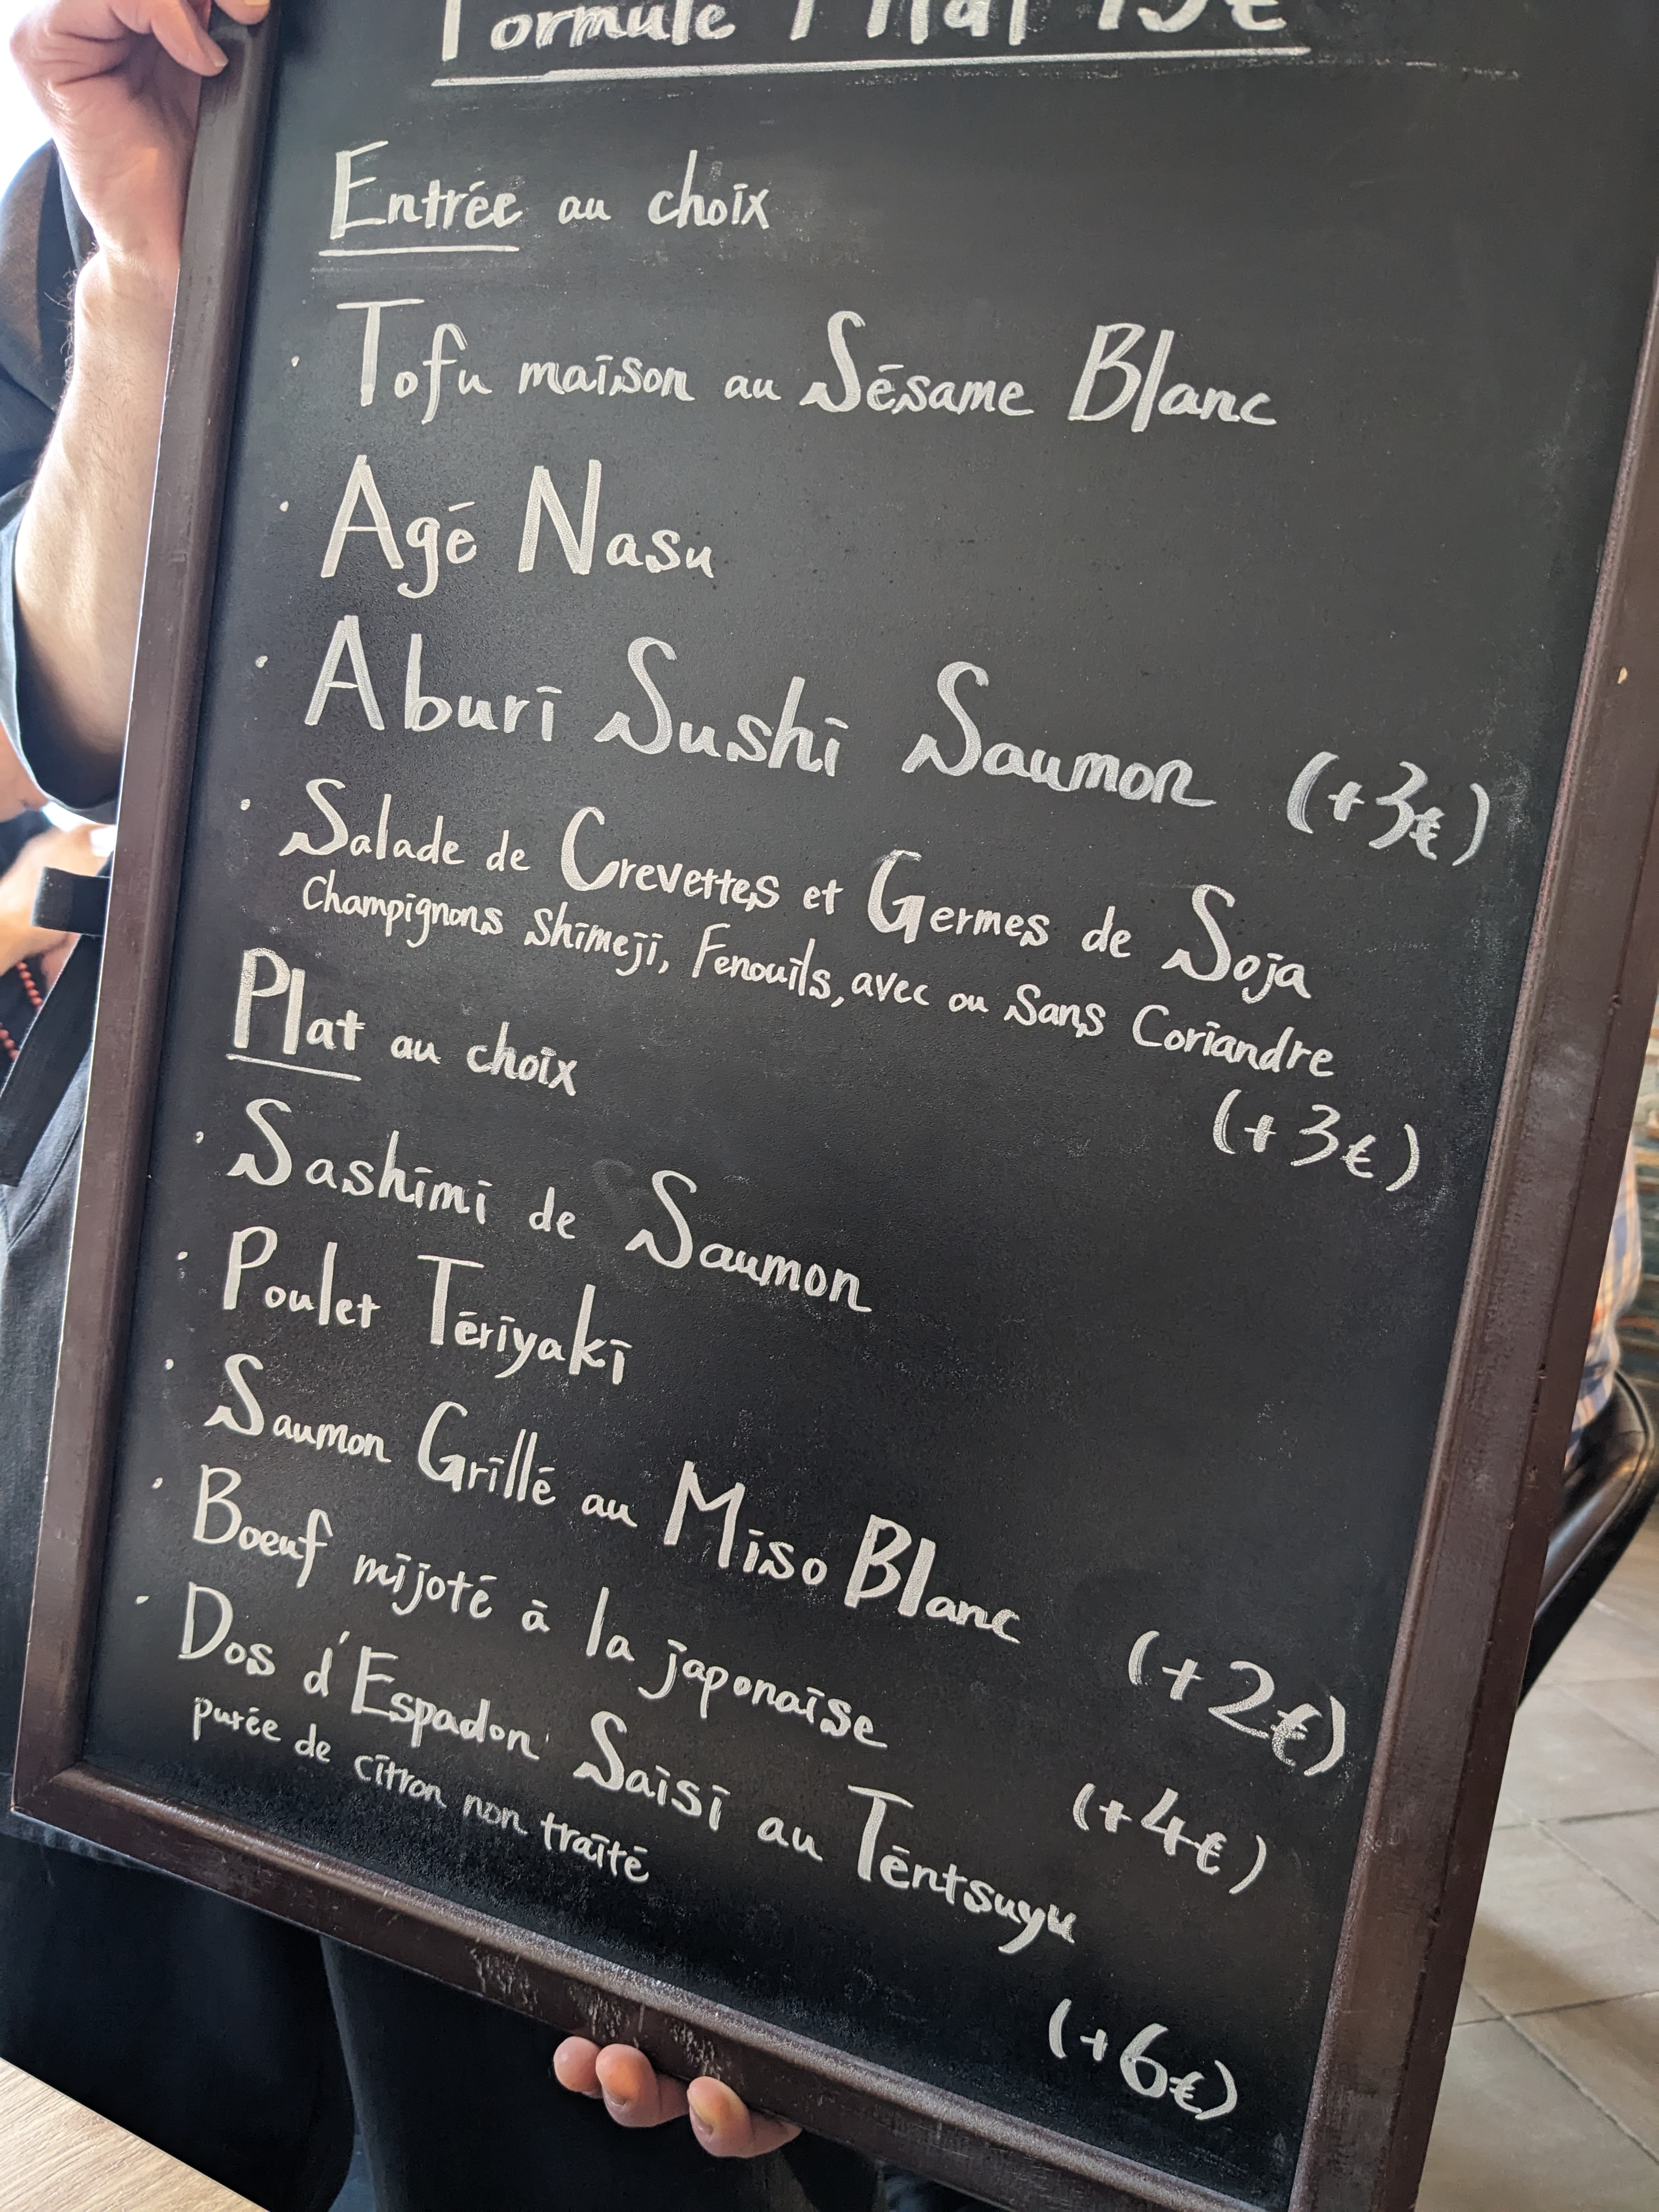 Formule
Entrée au choix
· Tofu maison au Sésame Blanc
· Agé Nasu
· Aburi Sushi Saumon (+3€)
· Salade de Crevettes et Germes de Soja
Champignons Shimeji, Fenouils, avec ou sans Coriandre
(+3€)
Plat au choix
· Sashimi de Saumon
· Poulet Tériyaki
· Saumon Grillé au Miso Blanc (+2€)
· Boeuf mijoté à la japonaise (+4€)
· Dos d'Espadon Saisi au Téntsuyu
purée de citron non traité
(+6€)